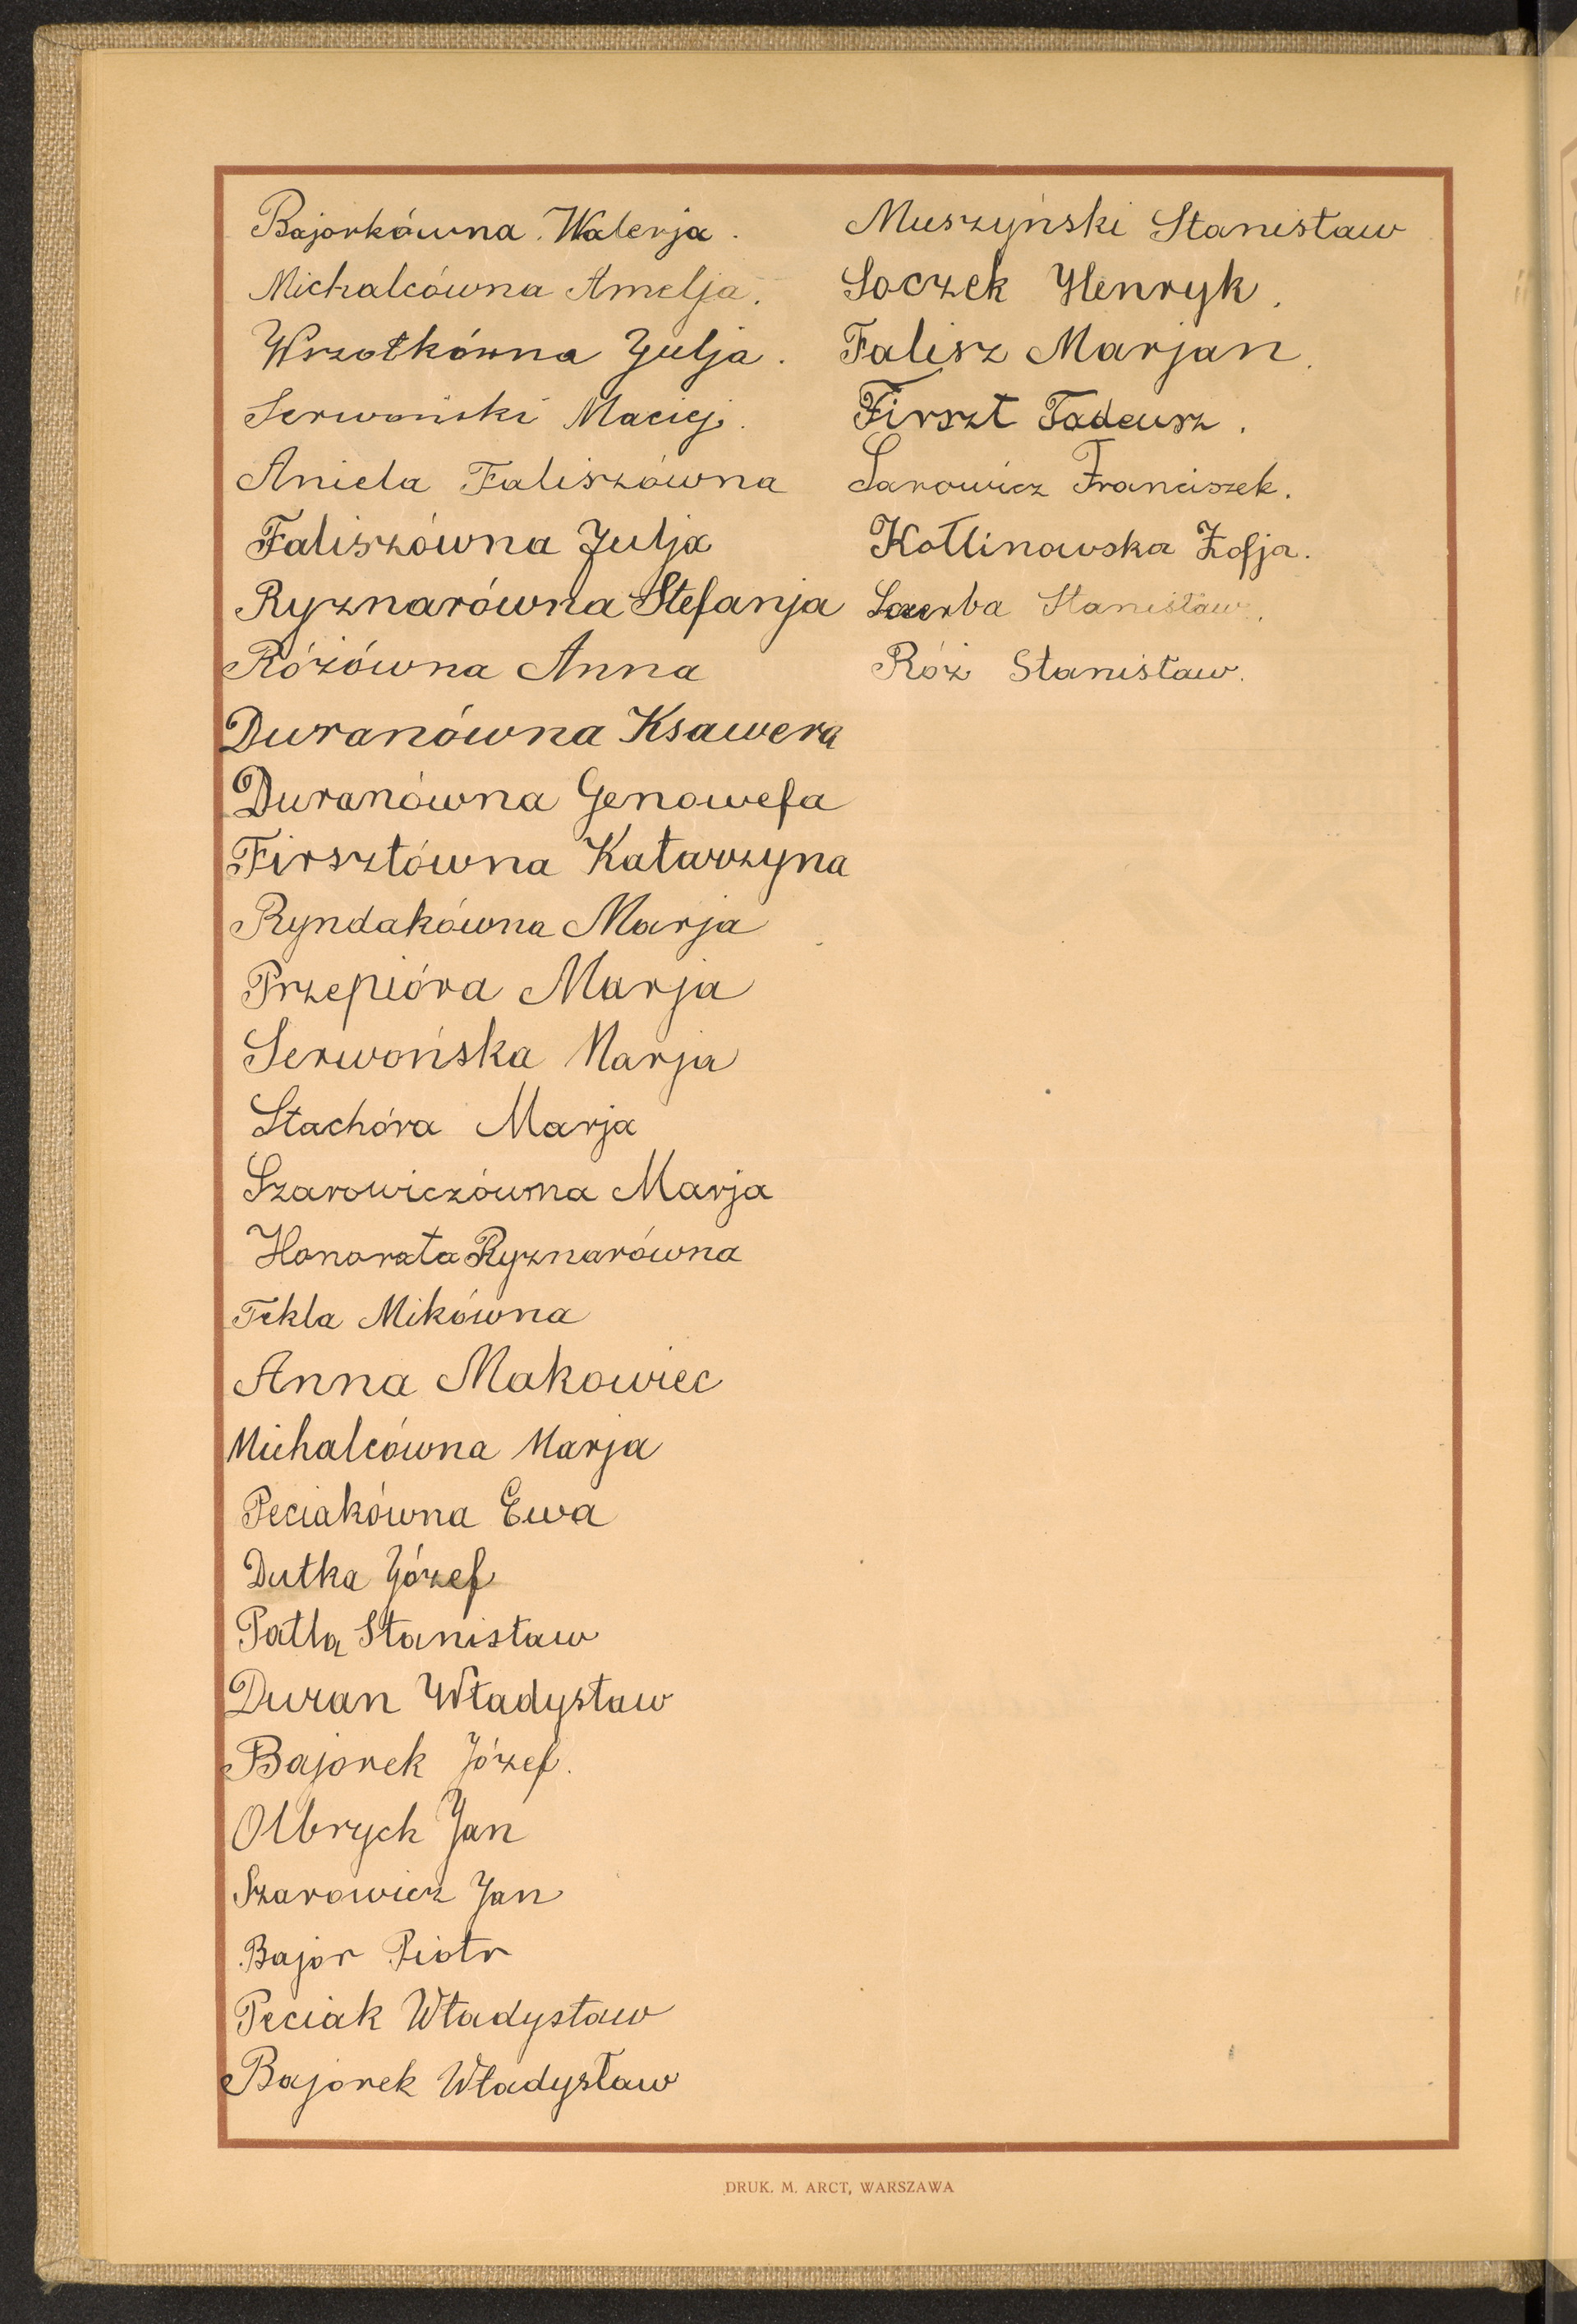 Bajorkówna Walerja.
Michalcówna Amelja.
Wrzotkówna Julja.
Serwoński Maciej.
Aniela Faliszówna
Faliszówna Julja
Ryznarówna Stefanja
Różówna Anna
Duranówna Ksawera
Duranówna Genowefa
Firsztówna Katarzyna
Ryndakówna Marja
Przepióra Marja
Serwońska Marja
Stachóra Marja
Szarowiczówna Marja
Honorata Ryznarówna
Tekla Mikówna
Anna Makowiec
Michalcówna Marja
Peciakówna Ewa
Dutka Józef
Patla Stanisław
Duran Władysław
Bajorek Józef.
Olbrych Jan
Szarowicz Jan
Bajor Piotr
Peciak Władysław
Bajorek Władysław
Muszyński Stanisław
Soczek Henryk.
Falisz Marjan.
Firszt Tadeusz.
Sarowicz Franciszek.
Kotlinowska Zofja.
Stanisław.
Róż Stanisław.
DRUK. M. ARCT, WARSZAWA